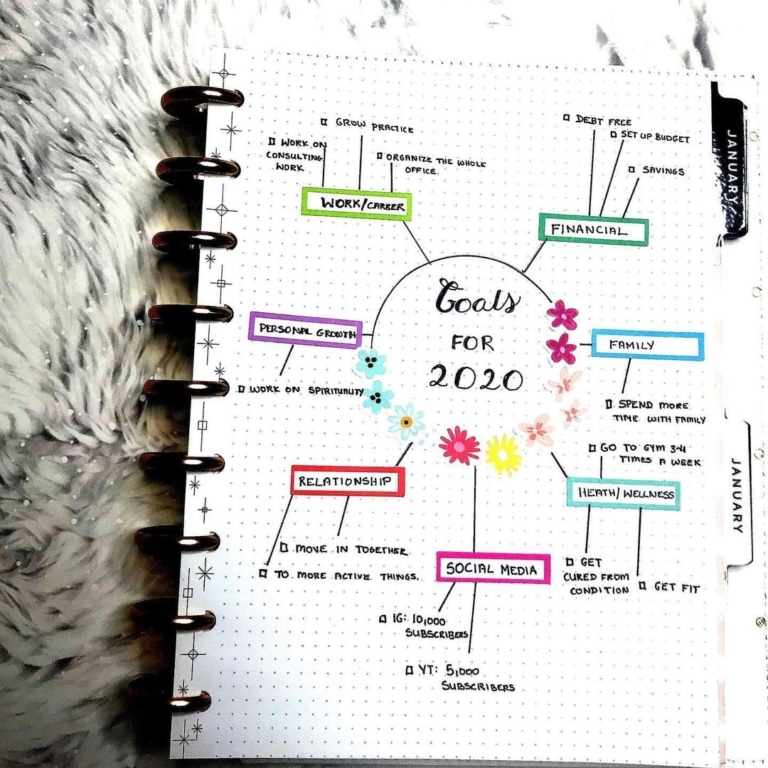 Goals
FOR
2020
WORK/CAREER
GROW PRACTICE
WORK ON
CONSULTING
WORK
ORGANIZE THE WHOLE
OFFICE.
FINANCIAL
DEBT FREE
SET UP BUDGET
SAVINGS
FAMILY
SPEND MORE
TIME WITH FAMILY
HEATH/WELLNESS
GO TO GYM 3-4
TIMES A WEEK
GET
CURED FROM
CONDITION
GET FIT
SOCIAL MEDIA
IG: 10,000
SUBSCRIBERS
YT: 5,000
SUBSCRIBERS
RELATIONSHIP
MOVE IN TOGETHER
TO MORE ACTIVE THINGS.
PERSONAL GROWTH
WORK ON SPIRITUALITY
JANUARY
JANUARY